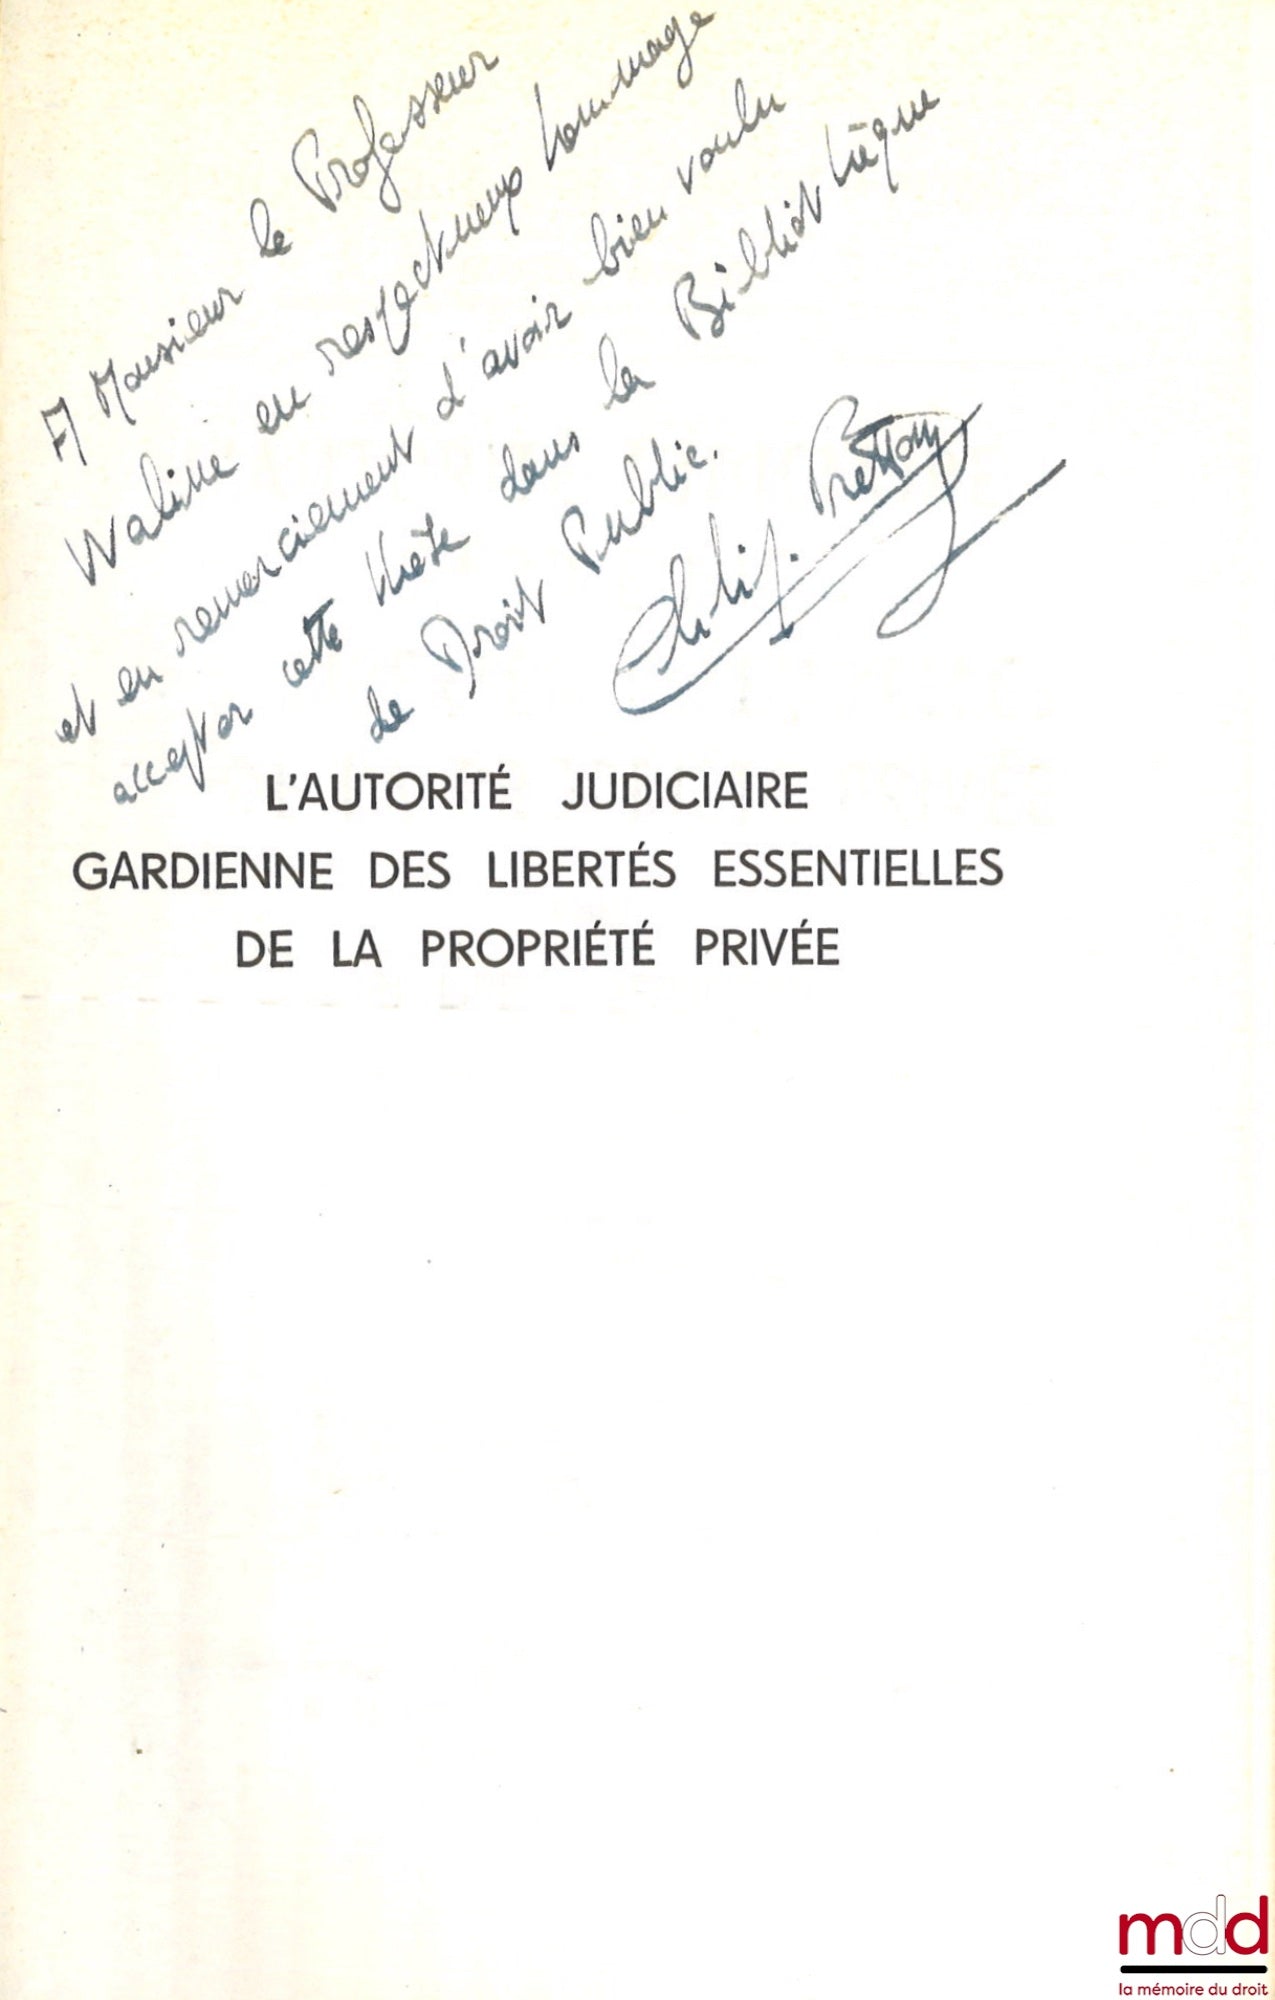 A Monsieur le Professeur
Waline en respectueux hommage
et en remerciement d'avoir bien voulu
accepter cette thèse dans la Bibliothèque
de Droit Public.
L'AUTORITÉ JUDICIAIRE
GARDIENNE DES LIBERTÉS ESSENTIELLES
DE LA PROPRIÉTÉ PRIVÉE
mdd
la mémoire du droit